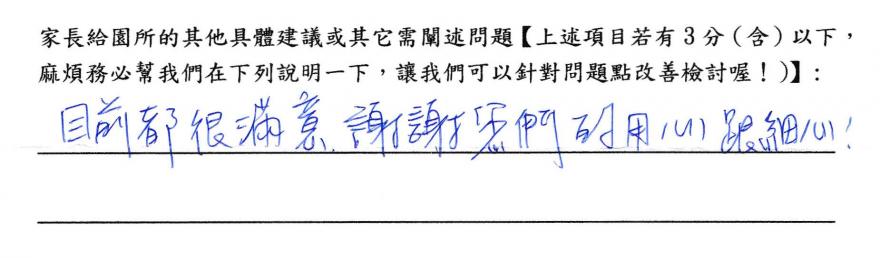 家長給園所的其他具體建議或其它需闡述問題【上述項目若有3分(含)以下，
麻煩務必幫我們在下列說明一下，讓我們可以針對問題點改善檢討喔！)】:
目前都很滿意. 謝謝您們的用心跟細心!